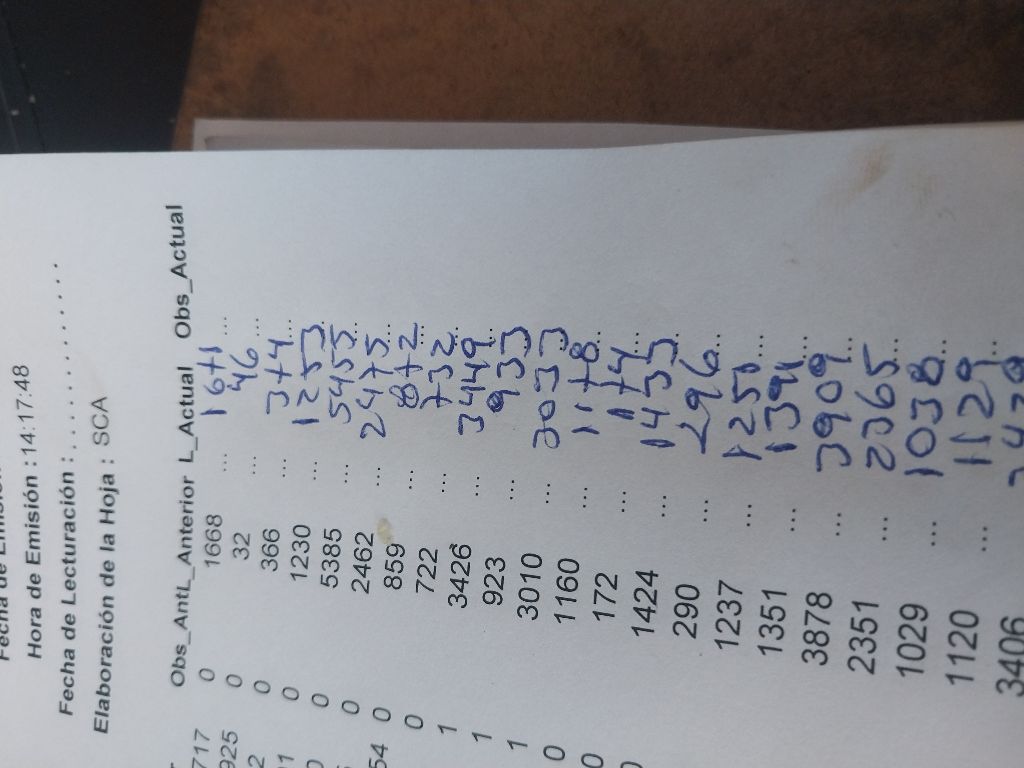 Hora de Emisión : 14:17:48
Fecha de Lecturación : . . . . . . . . . . . . . .
Elaboración de la Hoja : SCA
Obs_Ant L_Anterior L_Actual Obs_Actual
717 0 1668 ... 1671 ...
925 0 32 ... 46 ...
2 0 366 ... 374 ...
0 1230 ... 1253 ...
0 5385 ... 5455 ...
0 2462 ... 2475 ...
54 0 859 ... 872 ...
0 722 ... 732 ...
1 3426 ... 3449 ...
1 923 ... 933
1 3010 ... 3033
0 1160 ... 1178 ...
0 172 ... 174 ...
1424 ... 1435 ...
290 ... 296 ...
1237 ... 1250 ...
1351 ... ...
3878 ... 3909 ...
2351 ... 2365 ...
1029 ... 1038 ...
1120 ... 1129 ...
3406